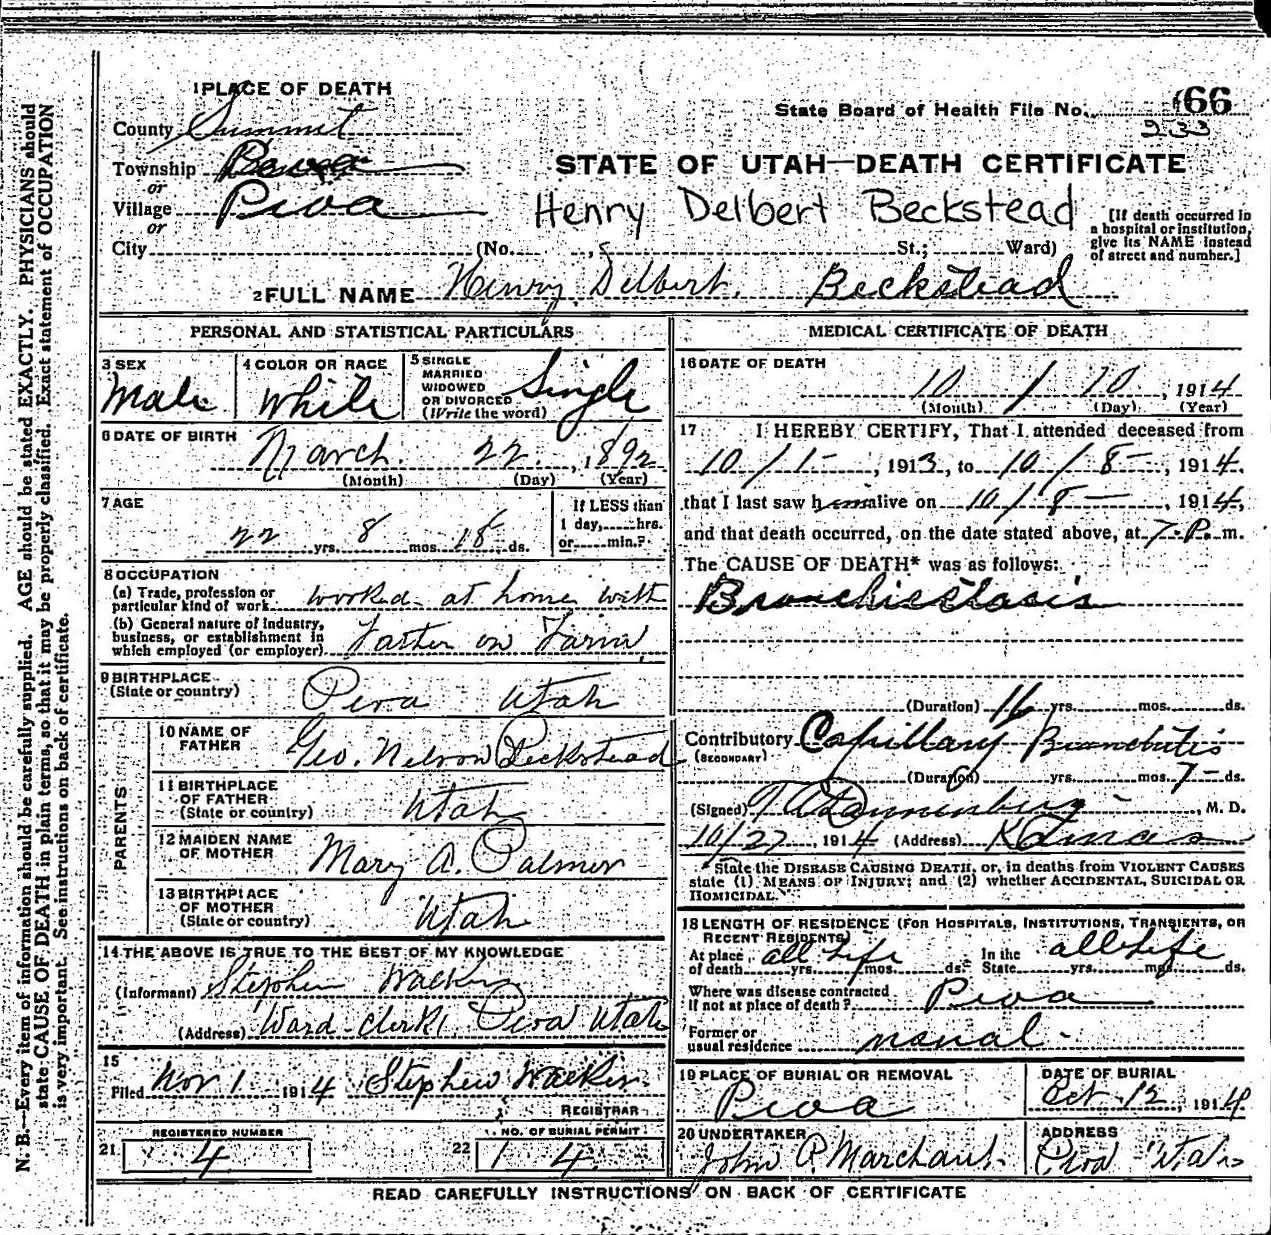 1 PLACE OF DEATH
County Summit
Township
or
Village Peoa
or
City (No. St.; Ward)
State Board of Health File No. 66
233
STATE OF UTAH—DEATH CERTIFICATE
Henry Delbert Beckstead
[If death occurred in a hospital or institution, give its NAME instead of street and number.]
2 FULL NAME Henry Delbert Beckstead
PERSONAL AND STATISTICAL PARTICULARS
3 SEX Male
4 COLOR OR RACE White
5 SINGLE MARRIED WIDOWED OR DIVORCED (Write the word) Single
6 DATE OF BIRTH March 22, 1892
(Month) (Day) (Year)
7 AGE 22 yrs. 8 mos. 18 ds.
If LESS than 1 day, hrs. or min.?
8 OCCUPATION
(a) Trade, profession or particular kind of work worked at home with
(b) General nature of industry, business, or establishment in which employed (or employer) Father on Farm
9 BIRTHPLACE (State or country) Peoa Utah
PARENTS
10 NAME OF FATHER Geo. Nelson Beckstead
11 BIRTHPLACE OF FATHER (State or country) Utah
12 MAIDEN NAME OF MOTHER Mary A. Palmer
13 BIRTHPLACE OF MOTHER (State or country) Utah
14 THE ABOVE IS TRUE TO THE BEST OF MY KNOWLEDGE
(Informant) Stephen Walker
(Address) Ward clerk, Peoa Utah
15 Filed Nov 1 1914 Stephen Walker
REGISTRAR
21 REGISTERED NUMBER 4
22 NO. OF BURIAL PERMIT 14
MEDICAL CERTIFICATE OF DEATH
16 DATE OF DEATH
10 / 10, 1914
(Month) (Day) (Year)
17 I HEREBY CERTIFY, That I attended deceased from
10/1-, 1913, to 10/8-, 1914,
that I last saw him alive on 10/8-, 1914,
and that death occurred, on the date stated above, at 7-P. m.
The CAUSE OF DEATH* was as follows:
Bronchiectasis
(Duration) 16 yrs. mos. ds.
Contributory (SECONDARY) Capillary Bronchitis
(Duration) yrs. mos. 7- ds.
(Signed) M. D.
10/27, 1914 (Address) Kamas
*State the DISEASE CAUSING DEATH, or, in deaths from VIOLENT CAUSES state (1) MEANS OF INJURY; and (2) whether ACCIDENTAL, SUICIDAL OR HOMICIDAL.
18 LENGTH OF RESIDENCE (FOR HOSPITALS, INSTITUTIONS, TRANSIENTS, OR RECENT RESIDENTS)
At place of death all Life yrs. mos. ds. In the State all Life yrs. mos. ds.
Where was disease contracted if not at place of death? Peoa
Former or usual residence usual
19 PLACE OF BURIAL OR REMOVAL Peoa
DATE OF BURIAL Oct 12, 1914
20 UNDERTAKER John P. Marchant
ADDRESS Peoa Utah
READ CAREFULLY INSTRUCTIONS ON BACK OF CERTIFICATE
N. B.—Every item of information should be carefully supplied. AGE should be stated EXACTLY. PHYSICIANS should
state CAUSE OF DEATH in plain terms, so that it may be properly classified. Exact statement of OCCUPATION
is very important. See instructions on back of certificate.